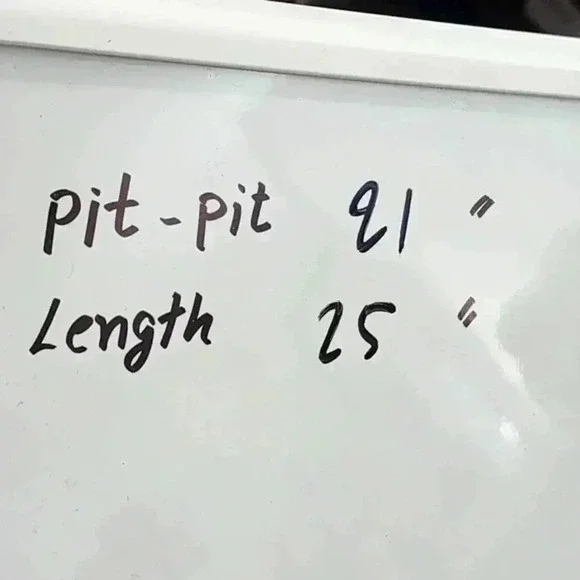 Pit-pit 21 "
Length 25 "